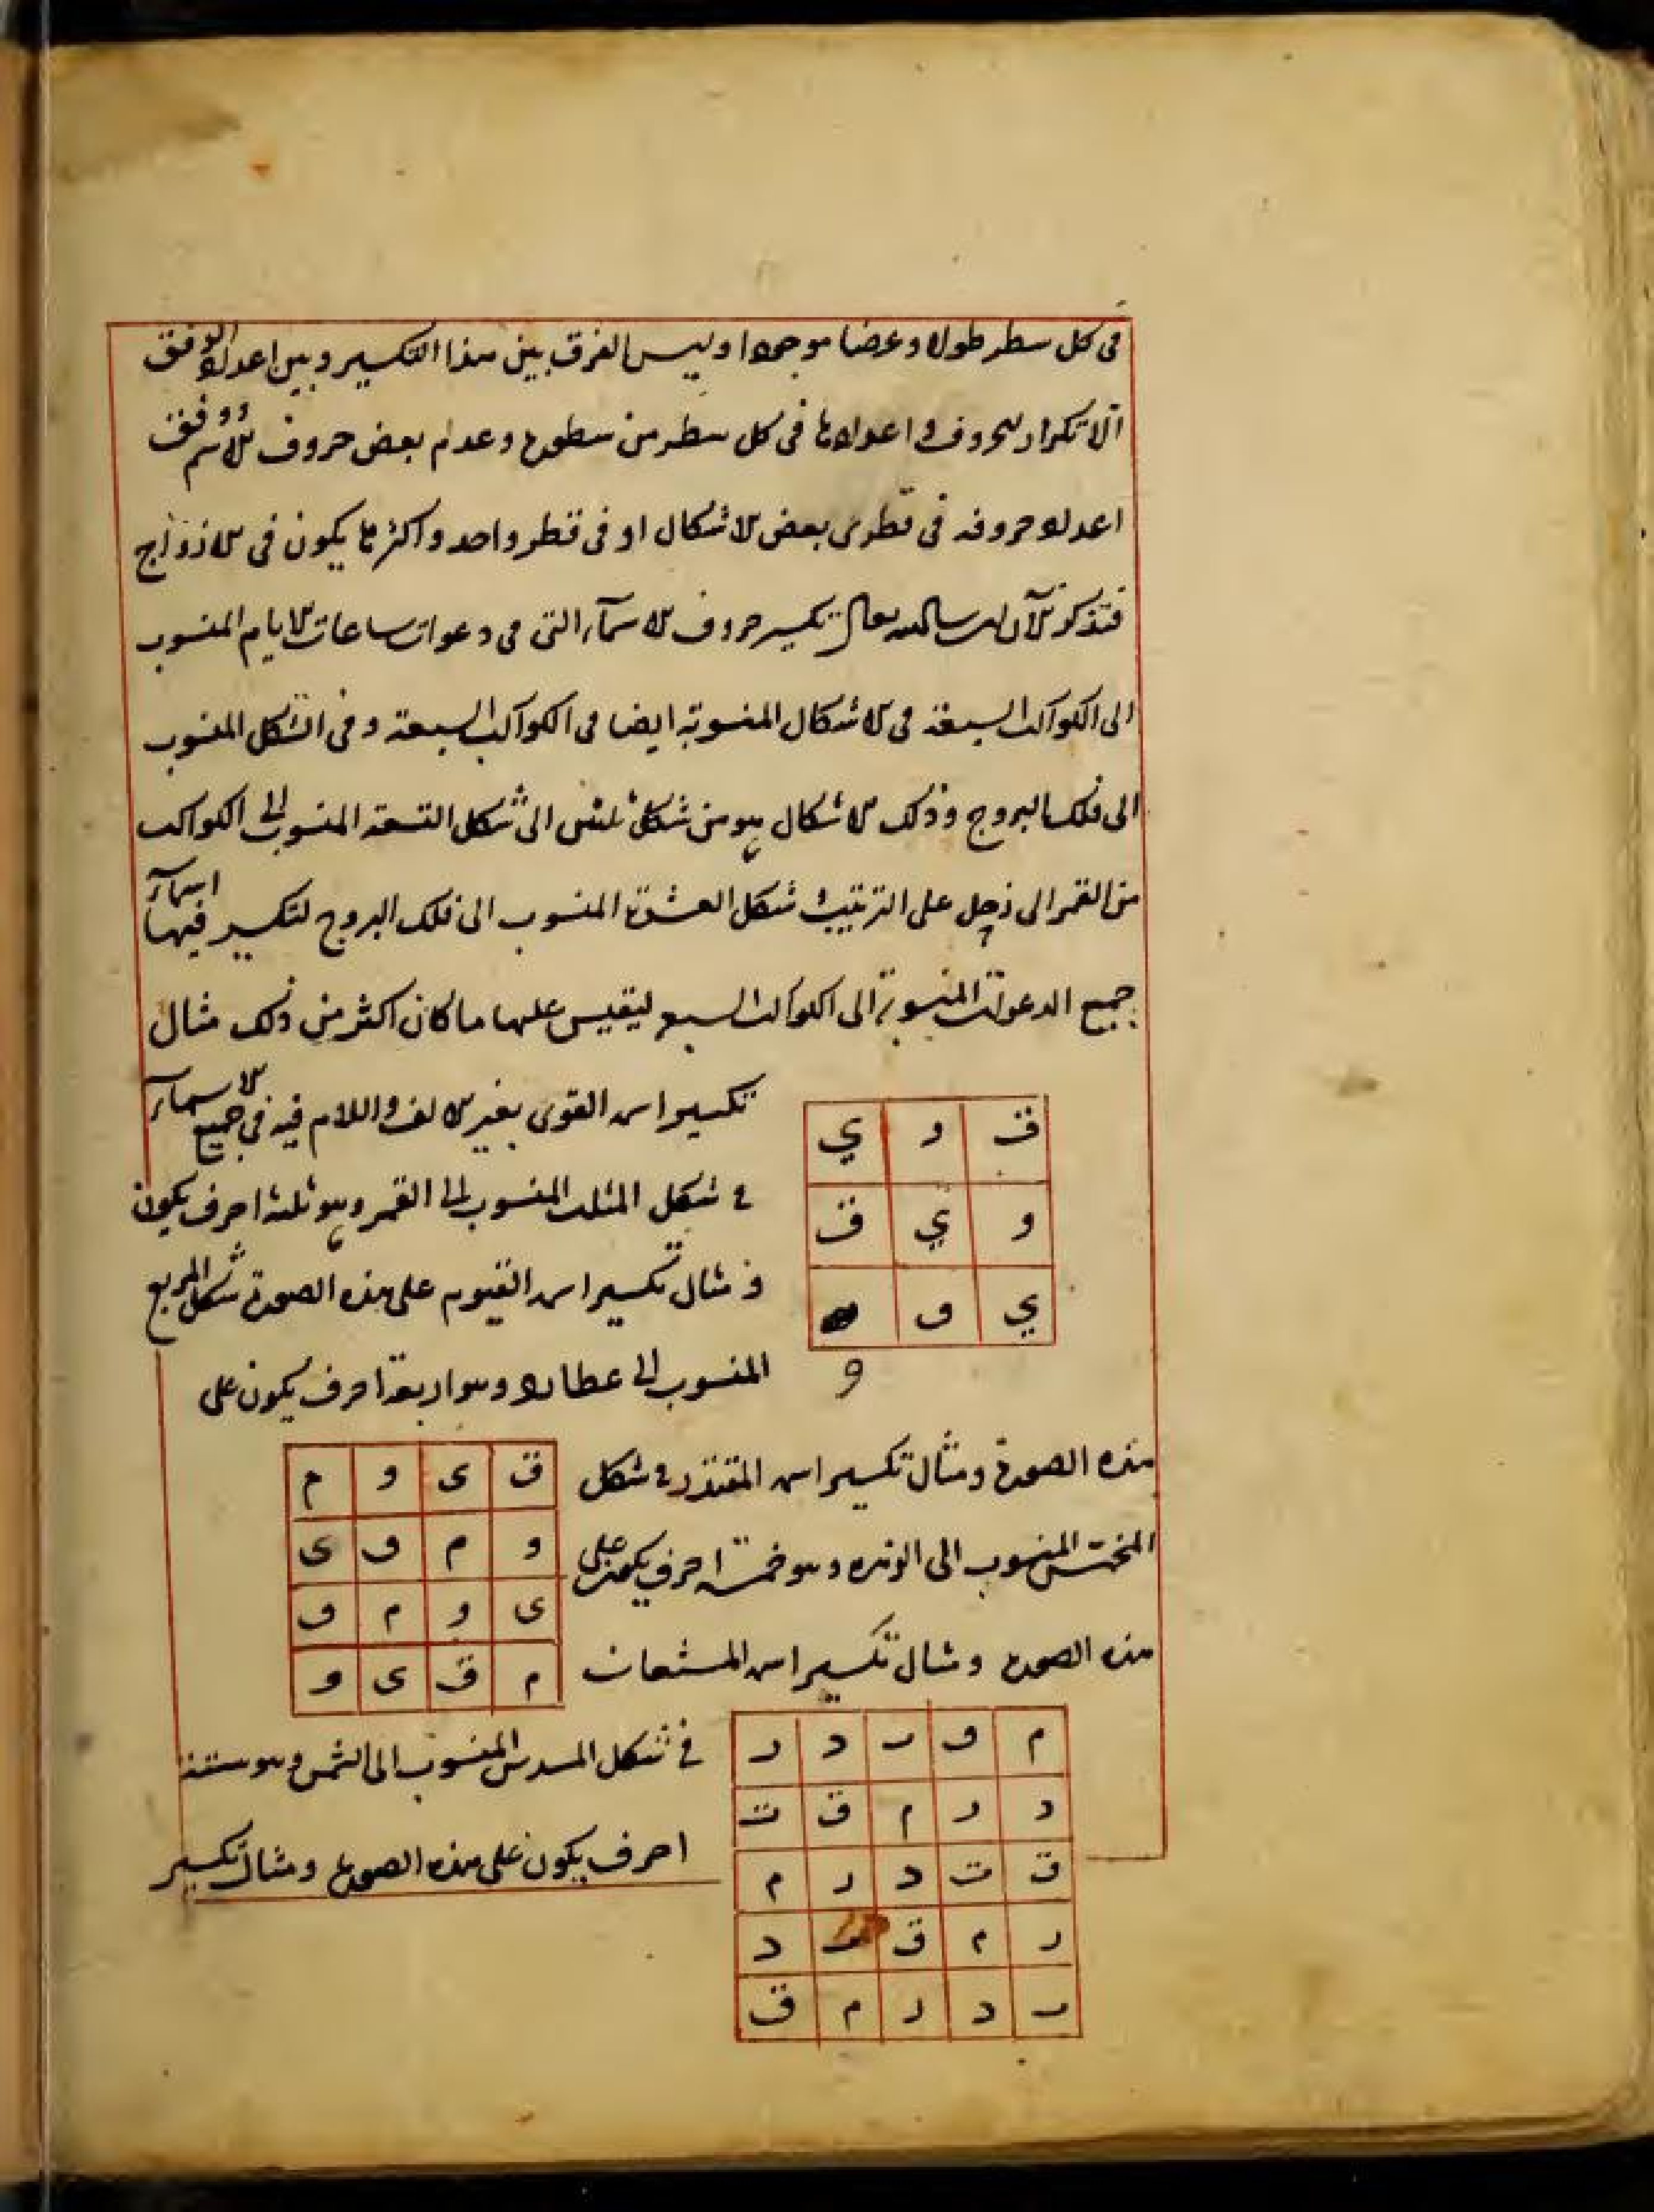 فى كل سطر طولا وعرضا موجودا وليس الفرق بين هذا التكسير وبين اعداد الوفق
الا تكرار الحروف واعدادها فى كل سطر من سطوره وعدم بعض حروف الاسم وفق
اعداد حروفه فى قطرى بعض الاشكال او فى قطر واحد واكثر ما يكون فى الازواج
فنذكر الآن تكسير حروف الاسمآء التى فى دعوات ساعات الايام المنسوب
الى الكواكب السبعة فى الاشكال المنسوبة ايضا فى الكواكب السبعة وفى الشكل المنسوب
الى فلك البروج وذلك الاشكال هو من شكل ثلثى الى شكل التسعة المنسوب الى الكواكب
من القمر الى زحل على الترتيب و شكل العشرة المنسوب الى فلك البروج لتكسير فيها اسمآء
جميع الدعوات المنسوبة الى الكواكب السبع ليقيس عليها ما كان اكثر من ذلك مثال
تكسير اسم القوى بغير الالف واللام فيه فى جميع الاسمآء
ق و ي
و ي ق
ي ق
و
فى شكل المثلث المنسوب الى القمر وهو ثلثة احرف يكون
مثال تكسير اسم القيوم على هذه الصورة شكل المربع
المنسوب الى عطارد وهو اربعة احرف يكون على
هذه الصورة ومثال تكسير اسم المقتدر فى شكل
المخمس المنسوب الى الزهره وهو خمسة احرف يكون على
هذه الصورة ومثال تكسير اسم المستعان
ق ى و م
و م ق ى
ى و م ق
م ق ى و
فى شكل المسدس المنسوب الى الشمس وهو ستة
احرف يكون على هذه الصورة ومثال تكسير
م ق ت د ر
د ر م ق ت
ق ت د ر م
ر م ق ت د
ت د ر م ق